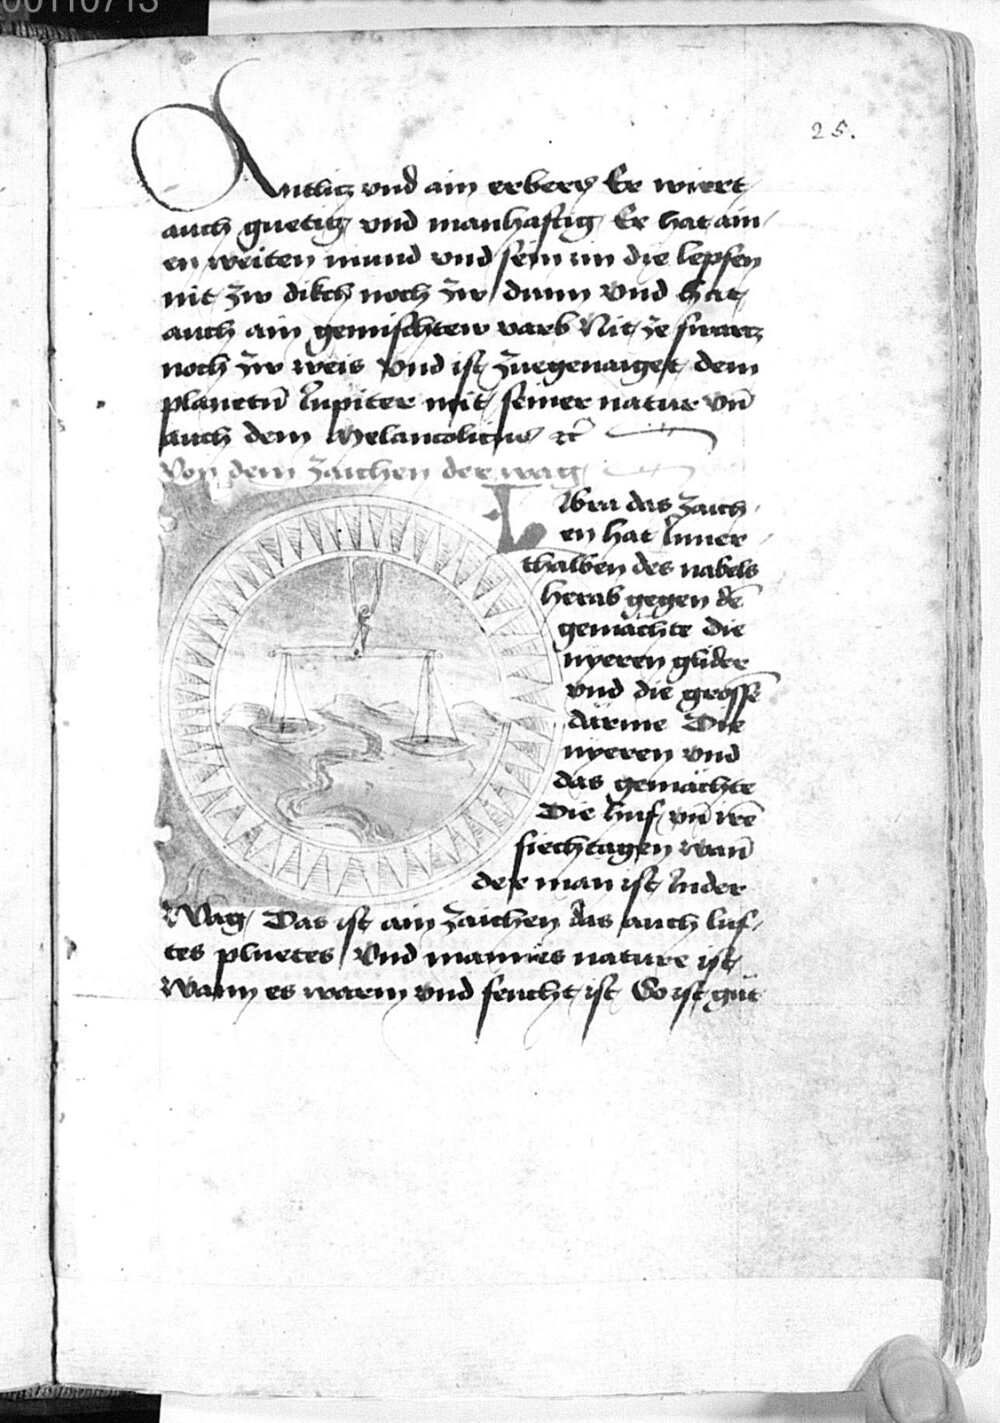 00110713
25.
Antlicz vnd ain erbers Er wiert
auch guetig vnd manhaftig Er hat ain
en weiten mund vnd sein im die lepsen
nit zw dikch noch zw dunn vnd hat
auch ain gemischten varb Nit ze swarcz
noch zw weis vnd ist zuegenaiget dem
planetn̄ Jupiter mit seiner natur vn̄
auch dem Melancolicus ꝛc̄
Von dem zaichen der wag
Libra das zaich
en hat Inner
thalben des nabels
herab gegen dē
gemächte die
nyeren glider
vnd die grossē
därme Die
nyeren vnd
das gemächte
Die huf vn̄ irē
siechtagen wan̄
der man ist In der
Wag Das ist ain zaichen das auch luf
tes pluetes vnd mannes nature ist
Wann es warm vnd feucht ist So ist gůt